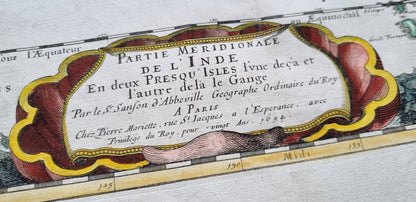 ou l'Æquateur
ou Æquinoctial
PARTIE MERIDIONALE
DE L'INDE
En deux PRESQU'ISLES l'vne deçà et
l'autre delà le Gange
Par le Sr. Sanson d'Abbeville Geographe Ordinaire du Roy
A PARIS
Chez Pierre Mariette, rue St. Jacques a l'Esperance, avec
Privilege du Roy, pour vingt Ans. 1654.
125
130
Midi
135